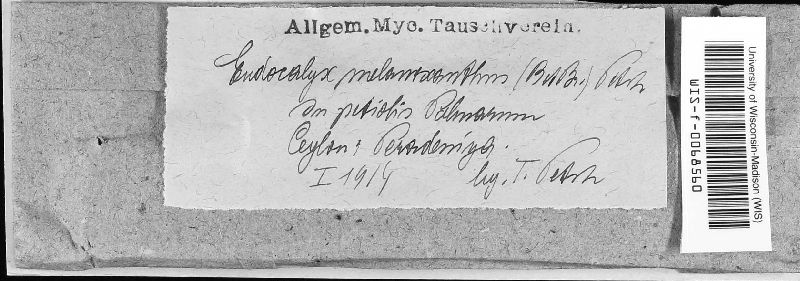 Allgem. Myc. Tauschverein.
Endocalyx melanoxanthus (B et Br.) Petch
In petiolis Palmarum
Ceylon: Peradeniya.
I 1914 leg. T. Petch
University of Wisconsin-Madison (WIS)
WIS-f-0068560